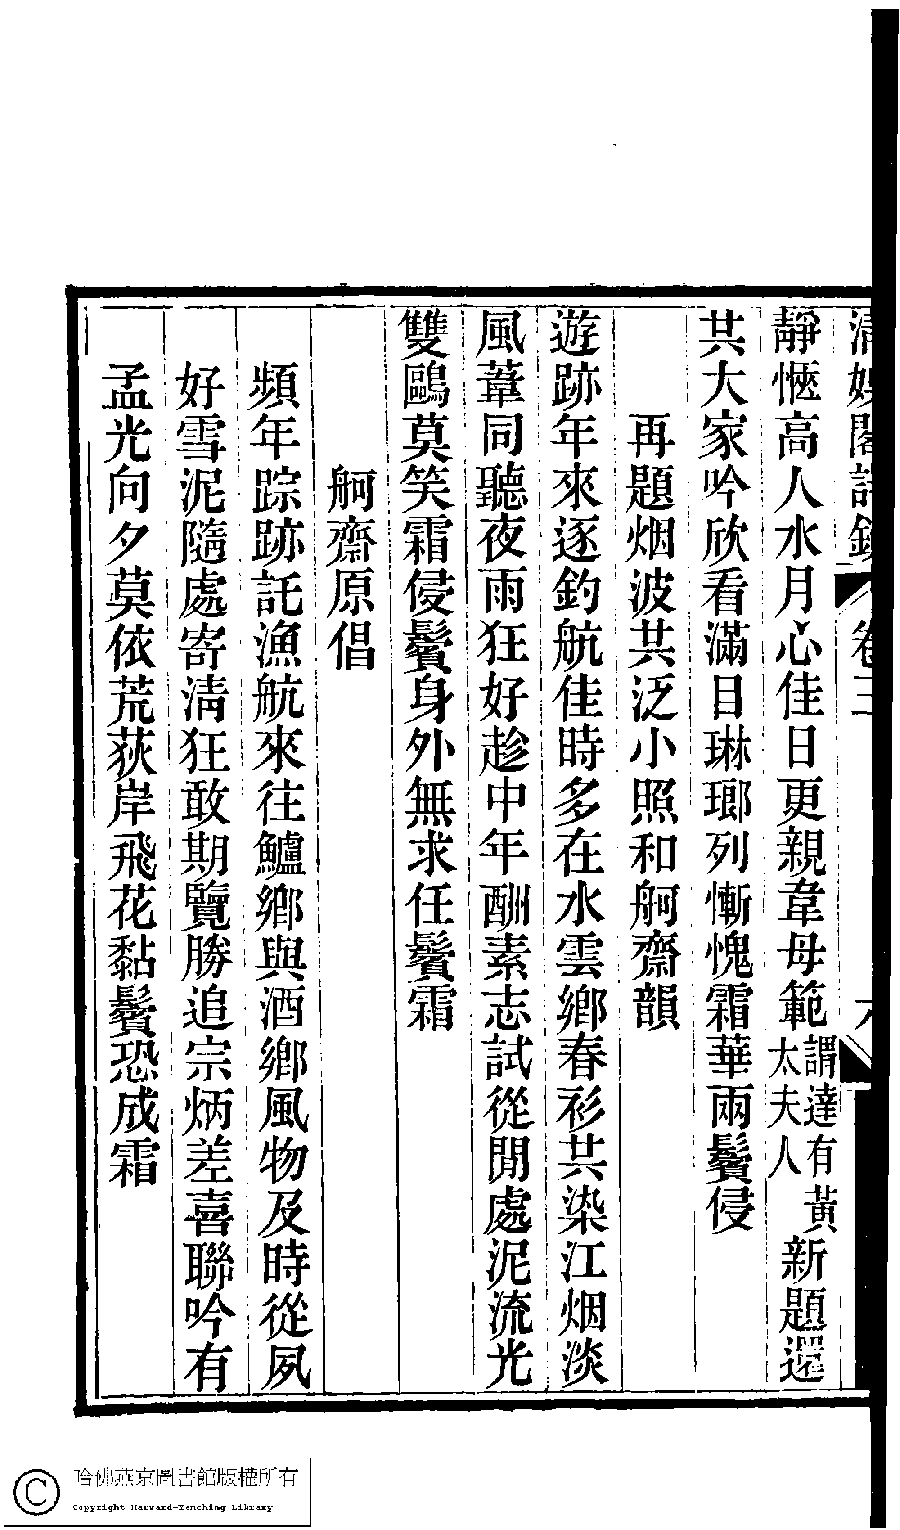 清娛閣詩鈔 卷三 六
靜愜高人水月心佳日更親韋母範謂達有黃太夫人新題還
共大家吟欣看滿目琳瑯列慚愧霜華兩鬢侵
再題烟波共泛小照和舸齋韻
遊跡年來逐釣航佳時多在水雲鄉春衫共染江烟淡
風葦同聽夜雨狂好趁中年酬素志試從閒處泥流光
雙鷗莫笑霜侵鬢身外無求任鬢霜
舸齋原倡
頻年踪跡託漁航來往鱸鄉與酒鄉風物及時從夙
好雪泥隨處寄淸狂敢期覽勝追宗炳差喜聯吟有
孟光向夕莫依荒荻岸飛花黏鬢恐成霜
哈佛燕京圖書館版權所有
Copyright Harvard-Yenching Library